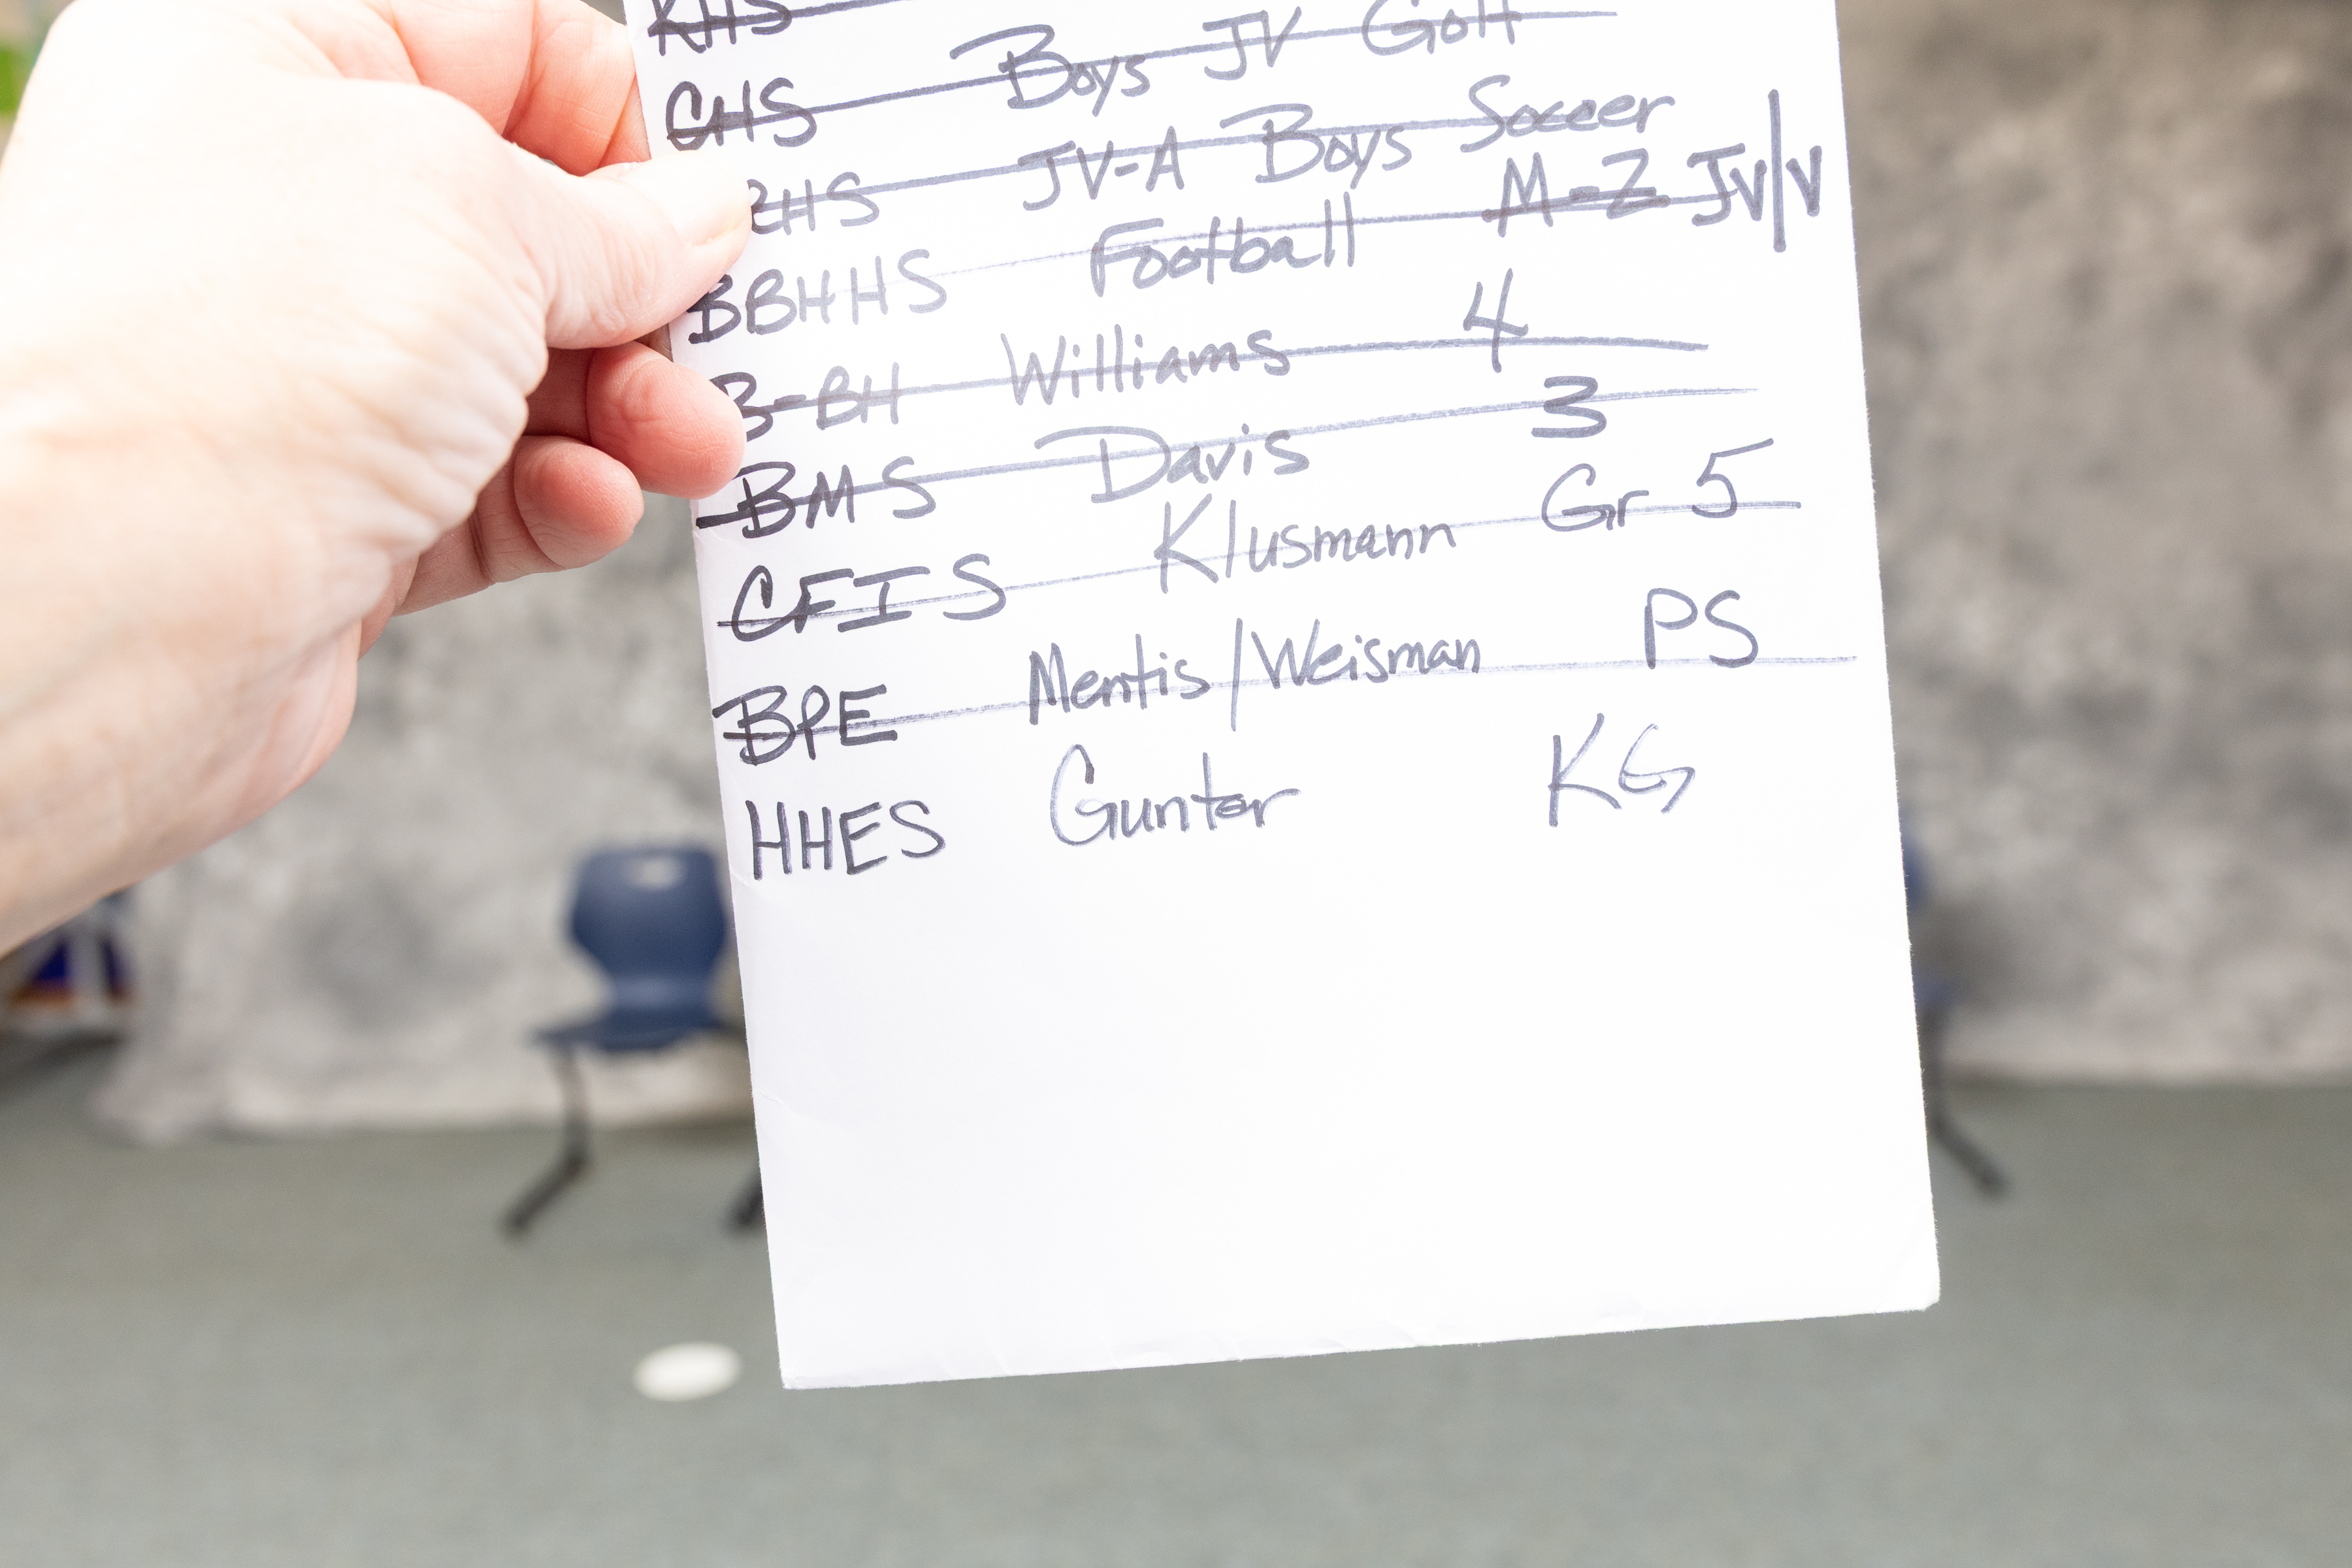 KHS
GHS Boys JV Golf
RHS JV-A Boys Soccer
BBHHS Football M-Z JV/V
B-BH Williams 4
BMS Davis 3
CFIS Klusmann Gr 5
BPE Mentis/Weisman PS
HHES Gunter KG